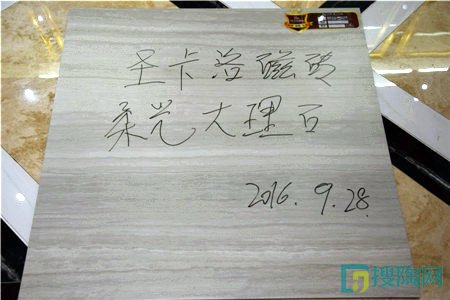 圣卡洛磁砖
柔光大理石
2016.9.28
搜陶网